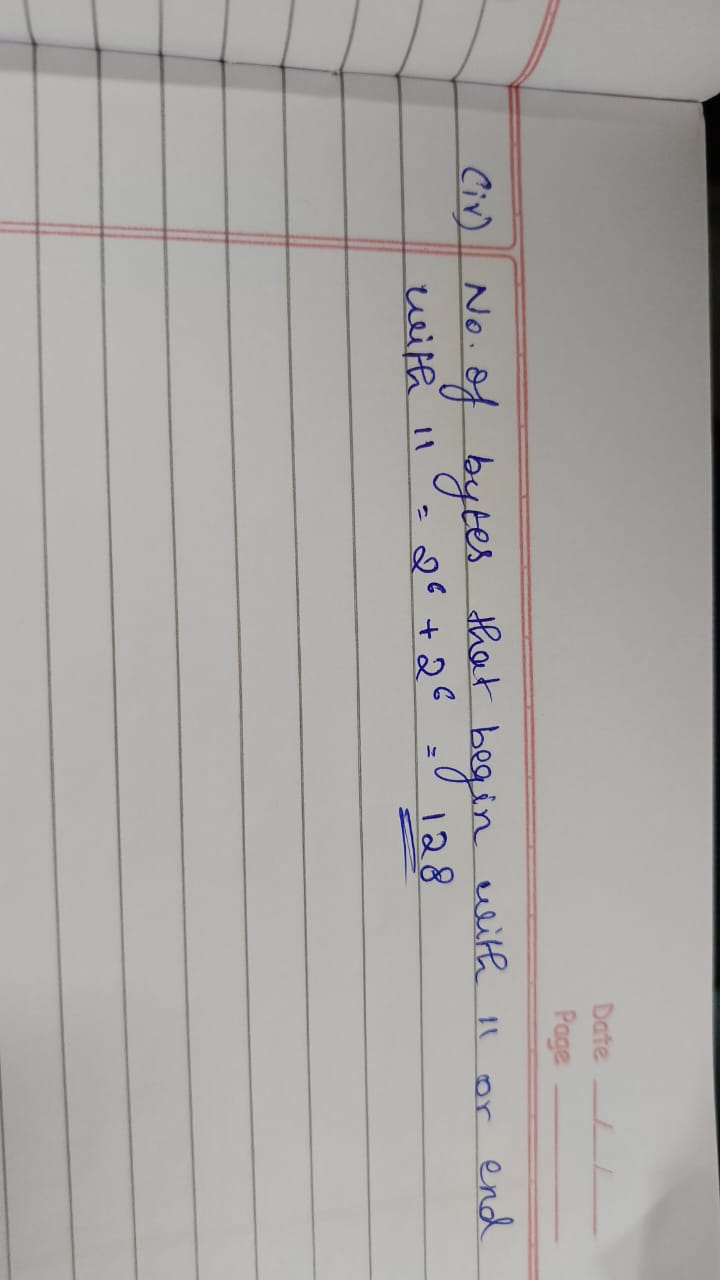 Date __/__/__
Page ______
(iv) No. of bytes that begin with 11 or end
with 11 = 2⁶ + 2⁶ = 128